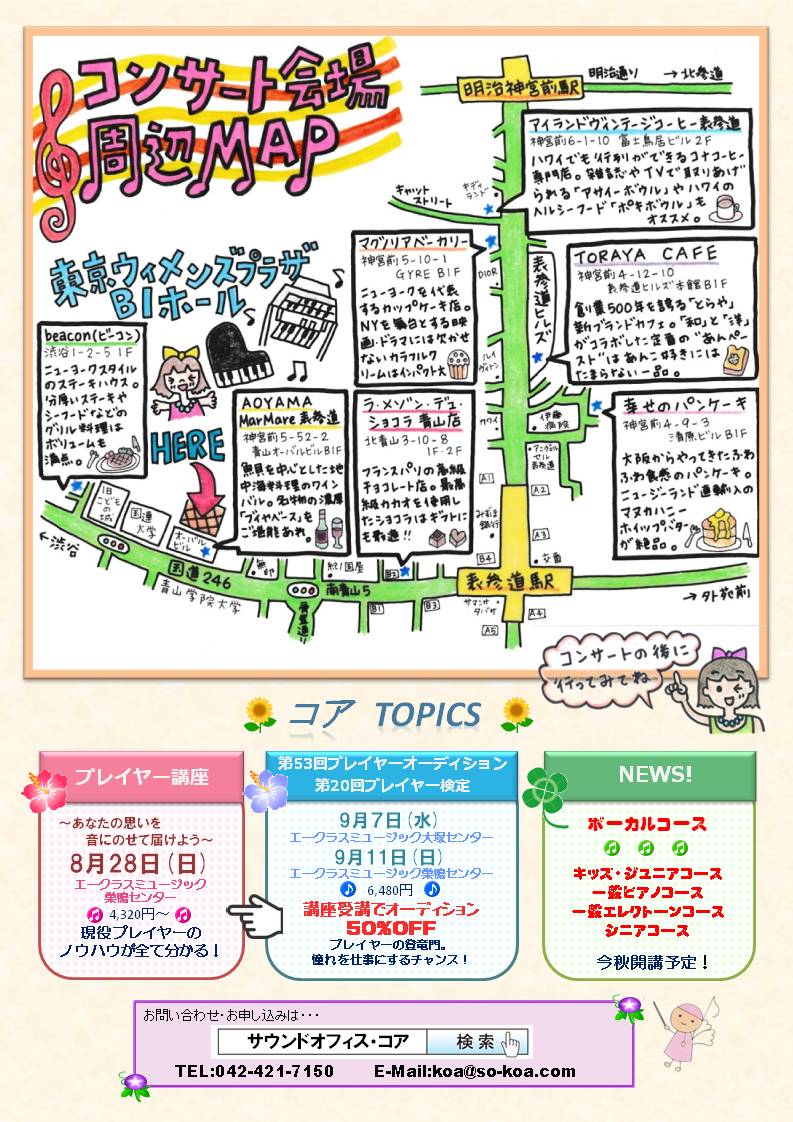 コンサート会場
周辺MAP
東京ウィメンズプラザ
B1ホール
HERE
明治神宮前駅
明治通り →北参道
アイランドヴィンテージコーヒー表参道
神宮前6-1-10 富士鳥居ビル2F
ハワイでも行列ができるコナコーヒー
専門店。雑誌やTVで取りあげ
られる「アサイーボウル」やハワイの
ヘルシーフード「ポキボウル」も
オススメ。
キャット
ストリート
キディ
ランド
マグノリアベーカリー
神宮前5-10-1
GYRE B1F
ニューヨークを代表
するカップケーキ店。
NYを舞台とする映
画・ドラマには欠かせ
ないカラフルク
リームはインパクト大
DIOR
表参道ヒルズ
TORAYA CAFE
神宮前4-12-10
表参道ヒルズ本館B1F
創業500年を誇る「とらや」
新ブランドカフェ。「和」と「洋」
がコラボした定番の"あんペー
スト"はあんこ好きには
たまらない一品。
beacon(ビーコン)
渋谷1-2-5 1F
ニューヨークスタイル
のステーキハウス。
分厚いステーキや
シーフードなどの
グリル料理は
ボリュームも
満点。
AOYAMA
MarMare 表参道
神宮前5-52-2
青山オーバルビルB1F
魚貝を中心とした地
中海料理のワイン
バル。名物の濃厚
「ブイヤベース」を
ご堪能あれ
ラ・メゾン・デュ・
ショコラ 青山店
北青山3-10-8
1F・2F
フランスパリの高級
チョコレート店。最高
級カカオを使用し
たショコラはギフトに
も最適!!
ルイ
ヴィトン
カワイ
伊藤
病院
アニヴェル
セル
表参道
幸せのパンケーキ
神宮前4-9-3
清原ビルB1F
大阪からやってきたふわ
ふわ食感のパンケーキ。
ニュージーランド直輸入の
マヌカハニー
ホイップバター
が絶品。
A1
A2
みずほ
銀行
A3
B4
交番
旧
こどもの
城
国連
大学
オーバル
ビル
←渋谷
国道246
青山学院大学
無印
紀ノ国屋
B2
骨董通り
南青山5
B1
B3
表参道駅
サマンサ
タバサ
A4
A5
→外苑前
コンサートの後に
行ってみてね
コア TOPICS
プレイヤー講座
～あなたの思いを
音にのせて届けよう～
8月28日(日)
エークラスミュージック
巣鴨センター
4,320円～
現役プレイヤーの
ノウハウが全て分かる!
第53回プレイヤーオーディション
第20回プレイヤー検定
9月7日(水)
エークラスミュージック大塚センター
9月11日(日)
エークラスミュージック巣鴨センター
6,480円
講座受講でオーディション
50%OFF
プレイヤーの登竜門。
憧れを仕事にするチャンス!
NEWS!
ボーカルコース
キッズ・ジュニアコース
一般ピアノコース
一般エレクトーンコース
シニアコース
今秋開講予定!
お問い合わせ・お申し込みは・・・
サウンドオフィス・コア 検索
TEL:042-421-7150 E-Mail:koa@so-koa.com